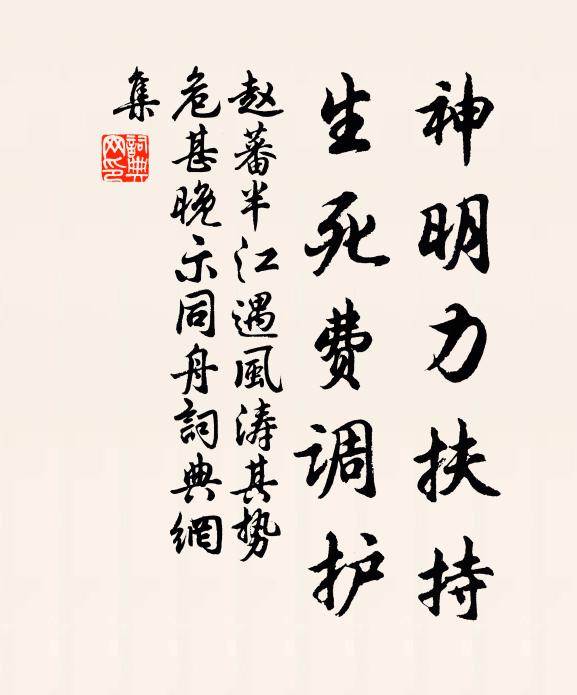 神明力扶持
生死费调护
赵蕃半江遇風涛其势
危甚晚示同舟詞典網
集
詞典
网印